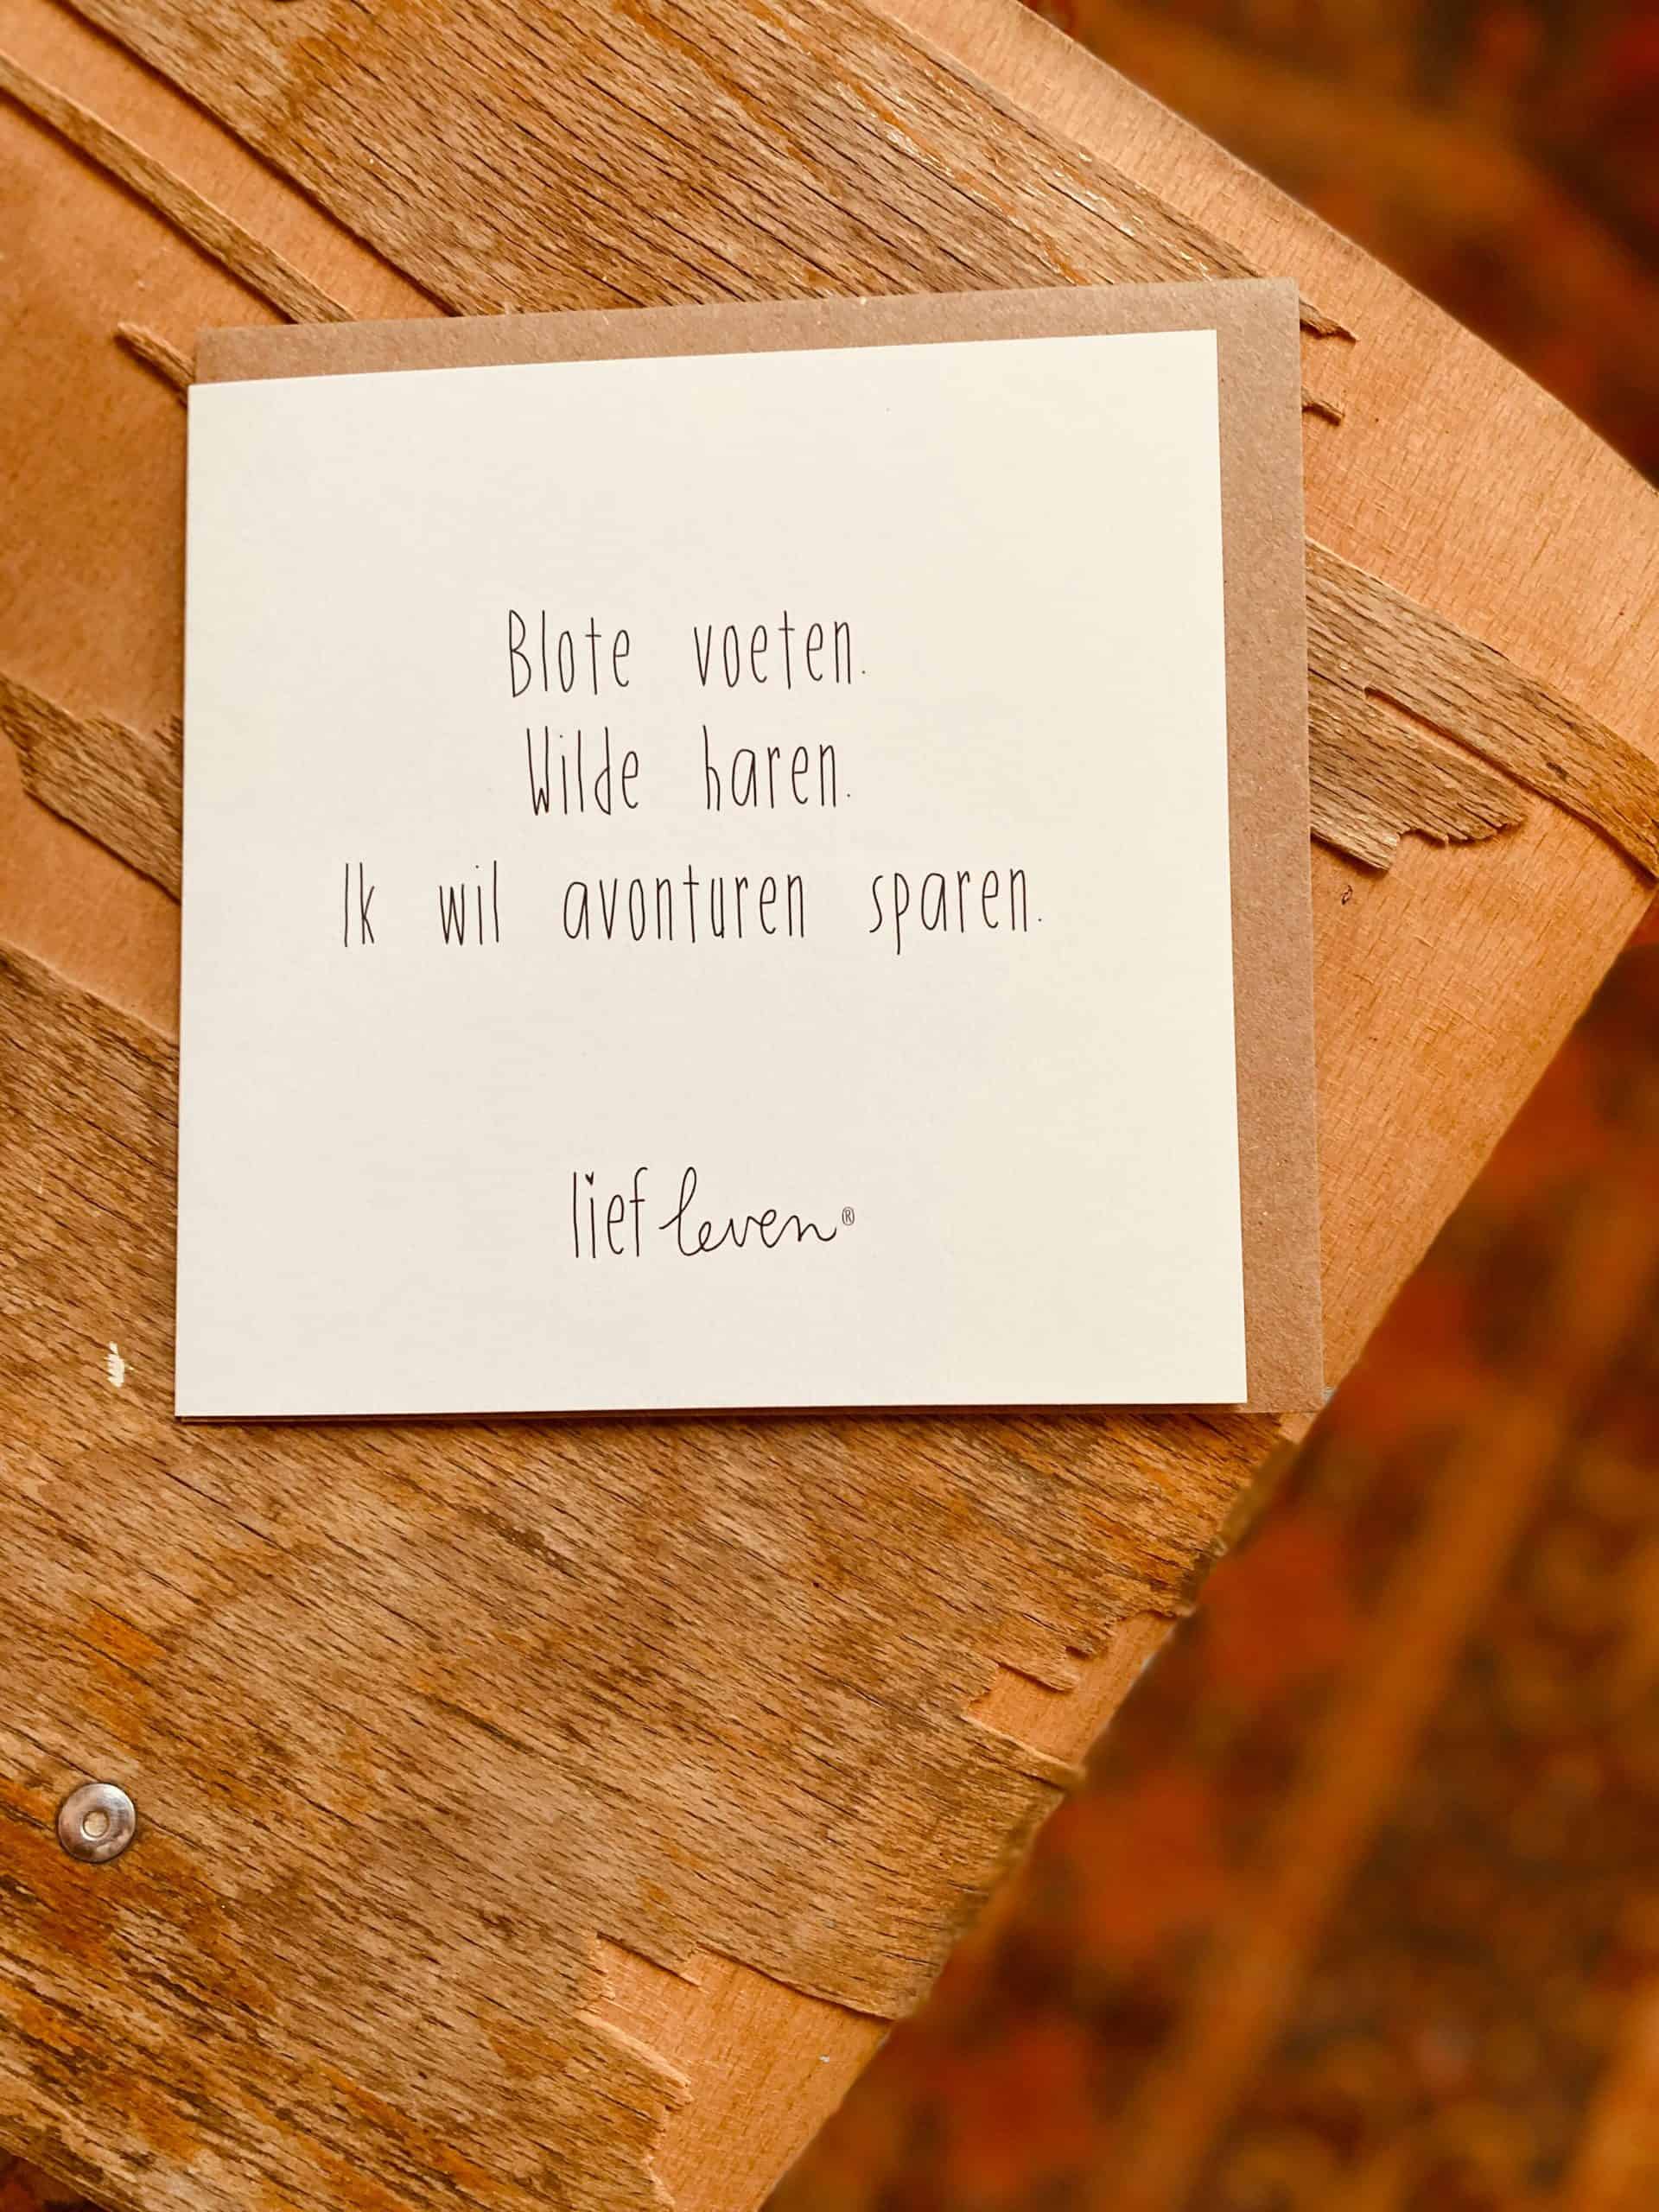 Blote voeten.
Wilde haren.
Ik wil avonturen sparen.
lief leven®